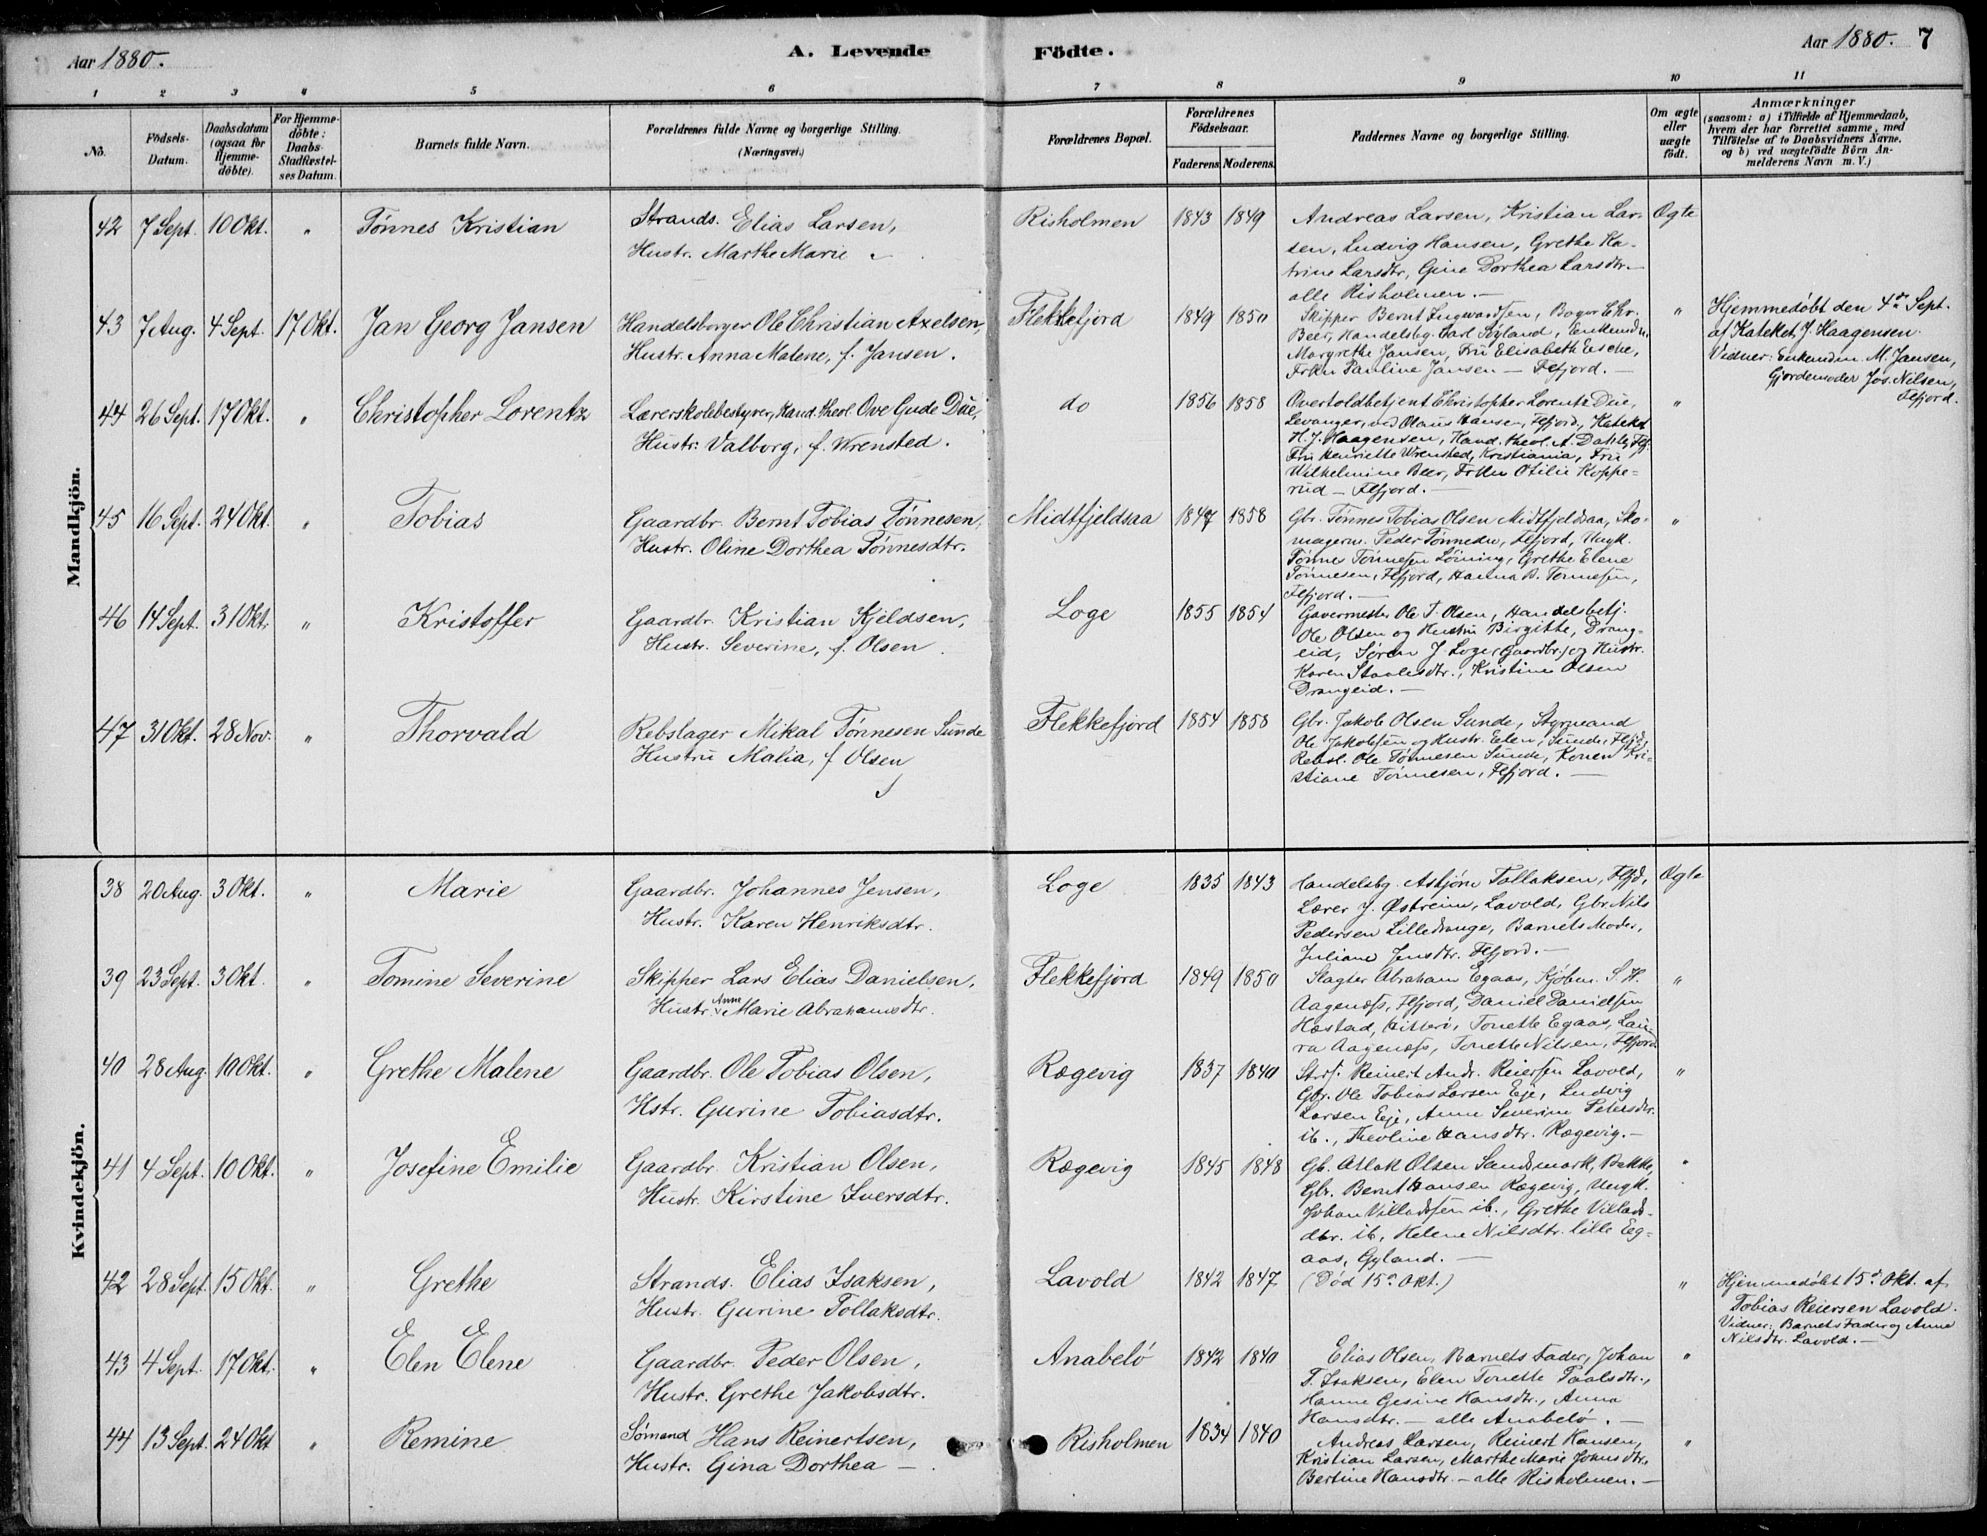 Aar 1880.
A. Levende Födte.
Aar 1880. 7
1 2 3 4 5 6 7 8 9 10 11
No.
Födsels-Datum.
Daabsdatum (ogsaa for Hjemme-döbte).
For Hjemme-döbte: Daabs-Stadfæstel-ses Datum.
Barnets fulde Navn.
Forældrenes fulde Navne og borgerlige Stilling. (Næringsvei.)
Forældrenes Bopæl.
Forældrenes Födselsaar. Faderens. Moderens.
Faddernes Navne og borgerlige Stilling.
Om ægte eller uægte födt.
Anmærkninger
(saasom: a) i Tilfælde af Hjemmedaab,
hvem der har forrettet samme, med
Tilföielse af to Daabsvidners Navne.
og b) ved uægtefödte Börn An-
melderens Navn m. V.)
Mandkjön.
42 7 Sept. 10 Okt. " Tønnes Kristian
Strands. Elias Larsen,
Hustr. Marthe Marie
Risholmen 1843 1849
Andreas Larsen, Kristian Lar-
sen, Ludvig Hansen, Grethe Ka-
trine Larsdtr, Gine Dorthea Larsdtr.-
alle Risholmen. -
Ægte
43 7 Aug. 4 Sept. 17 Okt. Jan Georg Jansen
Handelsborger Ole Christian Axelsen,
Hustr. Anna Malene, f. Jansen.
Flekkefjord 1849 1850
Skipper Bernt Ingwardsen, Chr.
Beer, Handelsbg. Carl
Margrethe Jansen, Fru Elisabeth
Frkn Pauline Jansen - Flfjord. -
"
Hjemmedøbt den 4de Sept.
af Kateket J. Haagensen.
Vidner: Enkemdm. M. Jansen,
Gjordemoder Jos. Nilsen,
Flfjord.
44 26 Sept. 17 Okt. " Christopher Lorentz
Lærerskolebestyrer, Kand. theol. Ove Gude Due,
Hustr. Valborg, f. Wrensted.
do 1856 1858
Overtoldbetjent Christopher Lorentz Due,
Levanger, ved Olaus Hansen, Flfjord, Kateket
H. J. Haagensen, Kand. theol. A.
Fru Henriette Wrensted, Kristiania, Fru
Wilhelmine Beer, Frkn Otilie Koppe-
rud - Flfjord. -
"
45 16 Sept. 24 Okt. " Tobias
Gaardbr. Bernt Tobias Tønnesen,
Hustr. Oline Dorthea Tønnesdtr.
Midtfjeldsaa 1847 1858
Gbr. Tønnes Tobias Olsen Midtfjeldsaa, Sko-
magerm. Peder Flfjord, Ungk.
Tønnes Tønnesen Grethe Elene
Tønnesen, Flfjord, Hanna B. Tønnesen,
Flfjord. -
"
46 14 Sept. 31 Okt. " Kristoffer
Gaardbr. Kristian Kjeldsen,
Hustr. Severine, f. Olsen.
Loge 1855 1854
Garvermester Ole T. Olsen, Handelsbetj.
Ole Olsen og Hustru Birgitte, Drang-
eid, Søren J. Loge (Gaardbr.) og Hustr.
Karen Staalesdtr., Kristine Olsen
Drangeid. -
47 31 Okt. 28 Nov. " Thorvald
Rebslager Mikal Tønnesen Sunde
Hustru Malia, f. Olsen
Flekkefjord 1854 1858
Gbr. Jakob Olsen Sunde, Styrmand
Ole Jakobsen og Hustr. Elen, Sunde, Flfjd,
Rebsl. Ole Tønnesen Sunde, Konen Kri-
stiane Tønnesen, Flfjord. -
Kvindekjön.
38 20 Aug. 3 Okt. " Marie
Gaardbr. Johannes Jensen,
Hustr. Karen Henriksdtr.
Loge 1835 1843
Handelsbg. Asbjørn Tollaksen, Flfjd,
Lærer J. Østreim, Lavold, Gbr Nils
Pedersen Lilledrange, Barnets Moder,
Juliane Jensdtr. Flfjord. -
Ægte
39 23 Sept. 3 Okt. " Tomine Severine
Skipper Lars Elias Danielsen,
Hustr. Anne Marie Abrahamsdtr.
Flekkefjord 1849 1850
Slagter Abraham Egaas, Kjøbm. S. H.
Aagenæs, Flfjord, Daniel Danielsen
Hæstad, Hitterø, Tonette Egaas, Lau-
ra Aagenæs, Tonette Nilsen, Flfjord
"
40 28 Aug. 10 Okt. " Grethe Malene
Gaardbr. Ole Tobias Olsen,
Hstr. Gurine Tobiasdtr.
Rægevig 1837 1840
Strs. Reinert Andr. Reiersen Lavold,
Gbr. Ole Tobias Larsen Eje, Ludvig
Larsen Eje, Anne Severine Petersdtr.
ib., Theoline Hansdtr. Rægevig. -
"
41 4 Sept. 10 Okt. " Josefine Emilie
Gaardbr. Kristian Olsen,
Hustr. Kirstine Iversdtr.
Rægevig 1845 1848
Gb. Atlak Olsen Sandsmark, Bakke,
Gbr. Bernt Hansen Rægevig, Ungk.
Johan Villadsen ib., Grethe Villads-
dtr. ib, Helene Nilsdtr. lille Eg-
aas, Gyland. -
"
42 28 Sept. 15 Okt. " Grethe
Strands. Elias Isaksen,
Hustr. Gurine Tollaksdtr.
Lavold 1842 1847
(Død 15de Okt.)
"
Hjemmedøbt 15de Okt. af
Tobias Reiersen Lavold.
Vidner: Barnets Fader og Anne
Nilsdtr. Lavold. -
43 4 Sept. 17 Okt. " Elen Elene
Gaardbr. Peder Olsen,
Hustr. Grethe Jakobsdtr.
Anabelø 1842 1840
Elias Olsen, Barnets Fader, Johan
T. Isaksen, Elen Tonette Paalsdtr.,
Hanne Gesine Hansdtr., Anna
Hansdtr. - alle Anabelø. -
"
44 13 Sept. 24 Okt " Remine
Sømand Hans Reinertsen,
Hustr. Gina Dorthea -
Risholmen 1834 1840
Andreas Larsen, Reinert Hansen,
Kristian Larsen, Marthe Marie Johnsdtr.
Bertine Hansdtr. - alle Risholmen. -
"